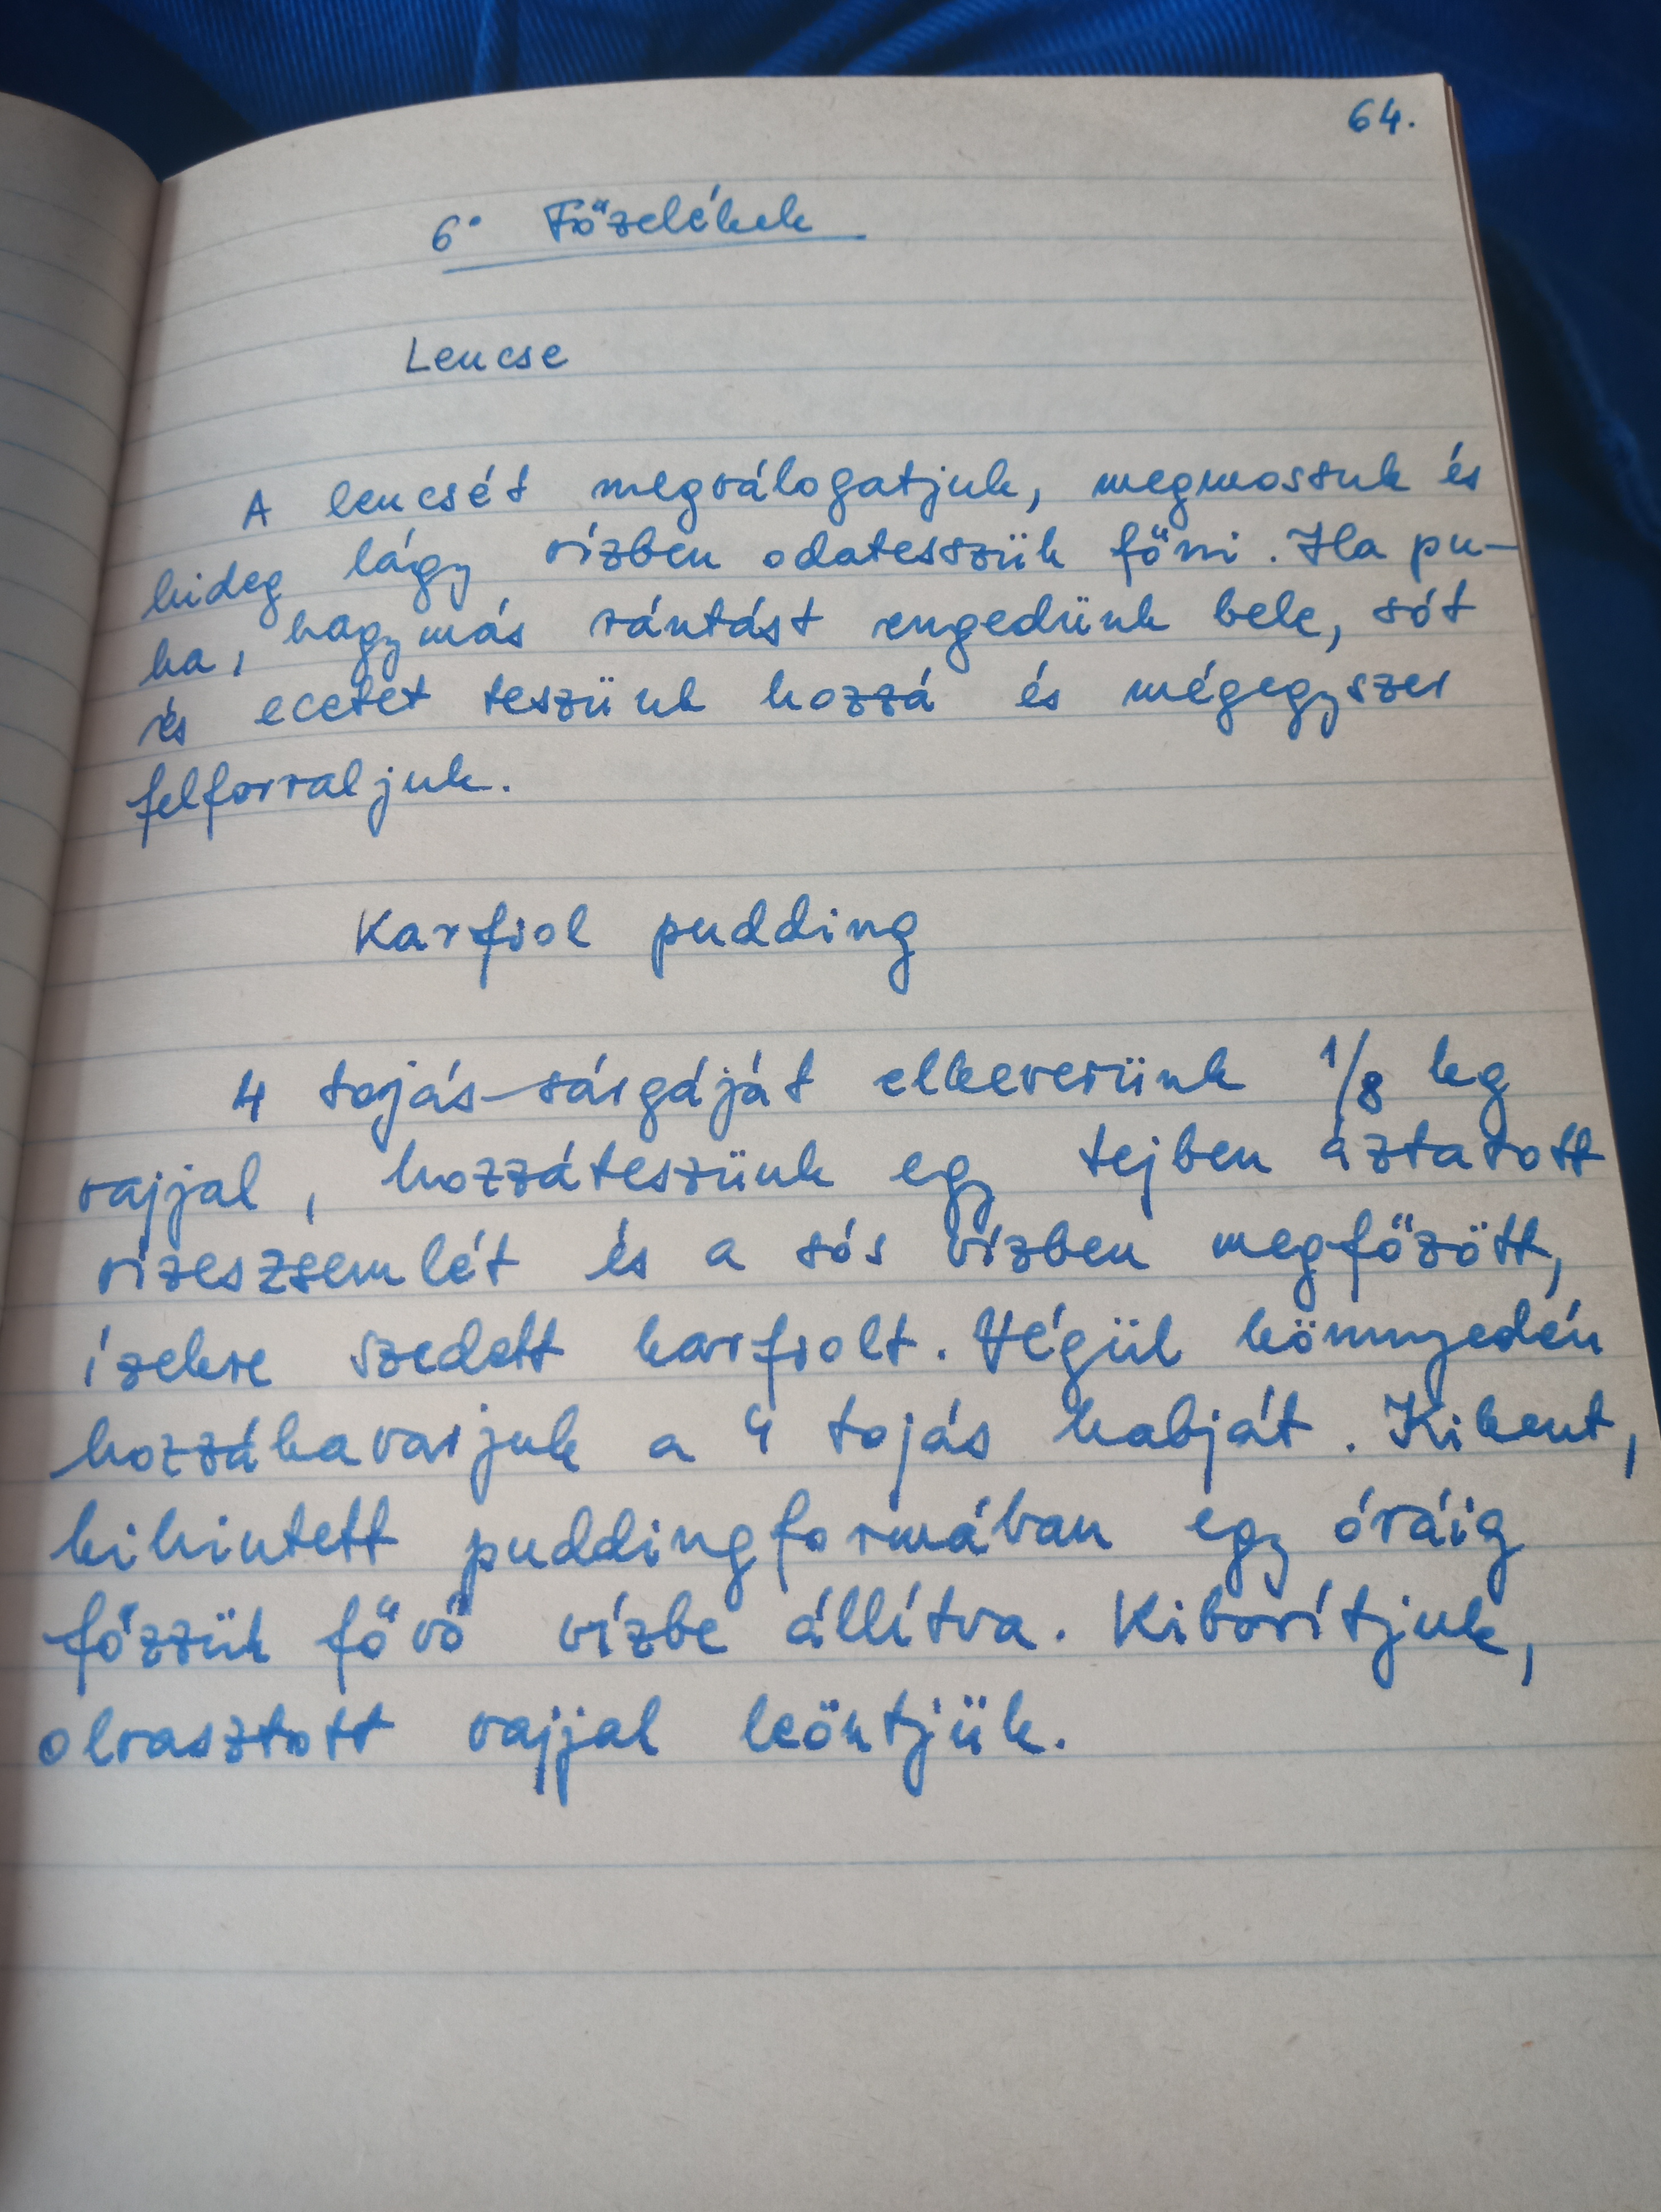 64.
6. Főzelékek
Lencse
A lencsét megválogatjuk, megmossuk és
hideg lágy vízben odatesszük főni. Ha pu-
ha, hagymás rántást engedünk bele, sót
és ecetet teszünk hozzá és mégegyszer
felforraljuk.
Karfiol pudding
4 tojás-sárgáját elkeverünk 1/8 kg
vajjal, hozzáteszünk egy tejben áztatott
vizeszsemlét és a sós vízben megfőzött,
ízekre szedett karfiolt. Végül könnyedén
hozzákavarjuk a 4 tojás habját. Kikent,
kihintett puddingformában egy óráig
főzzük fővő vízbe állítva. Kiborítjuk,
olvasztott vajjal leöntjük.